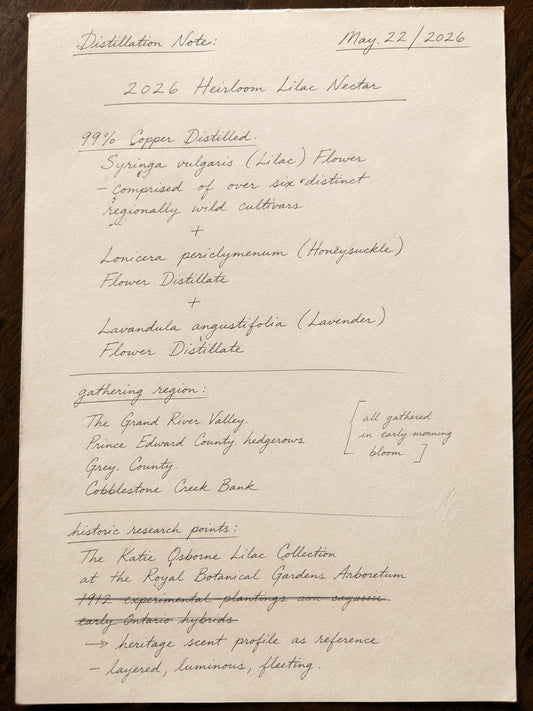 Distillation Note:
May. 22/2026
2026 Heirloom Lilac Nectar
99% Copper Distilled.
Syringa vulgaris (Lilac) Flower
- comprised of over six distinct
regionally wild cultivars
+
Lonicera periclymenum (Honeysuckle)
Flower Distillate
+
Lavandula angustifolia (Lavender)
Flower Distillate
gathering region:
The Grand River Valley.
Prince Edward County hedgerows
Grey. County.
Cobblestone Creek Bank
[all gathered
in early morning
bloom]
historic research points:
The Katie Osborne Lilac Collection
at the Royal Botanical Gardens Arboretum
1912 experimental plantings
early Ontario hybrids
→ heritage scent profile as reference
- layered, luminous, fleeting.